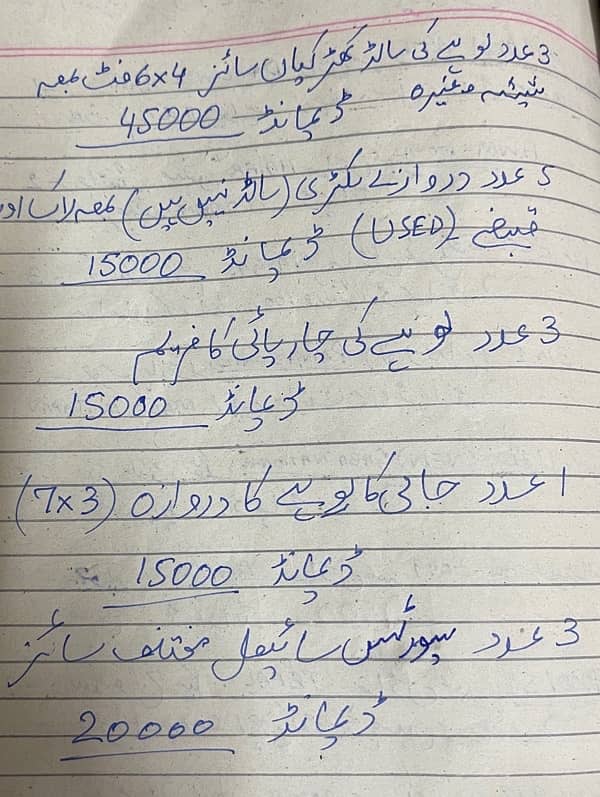 3 عدد لوہے کی سالڈ کھڑکیاں سائز 4×6 فٹ بمعہ
شیشہ وغیرہ
ڈیمانڈ 45000
5 عدد دروازے لکڑی (سالڈ نہیں ہیں) بمعہ لاک اور
قبضے (USED) ڈیمانڈ 15000
3 عدد لوہے کی چارپائی کا فریم
ڈیمانڈ 15000
1 عدد جالی کا لوہے کا دروازہ (7×3)
ڈیمانڈ 15000
3 عدد سپورٹس سائیکل مختلف سائز
ڈیمانڈ 20000